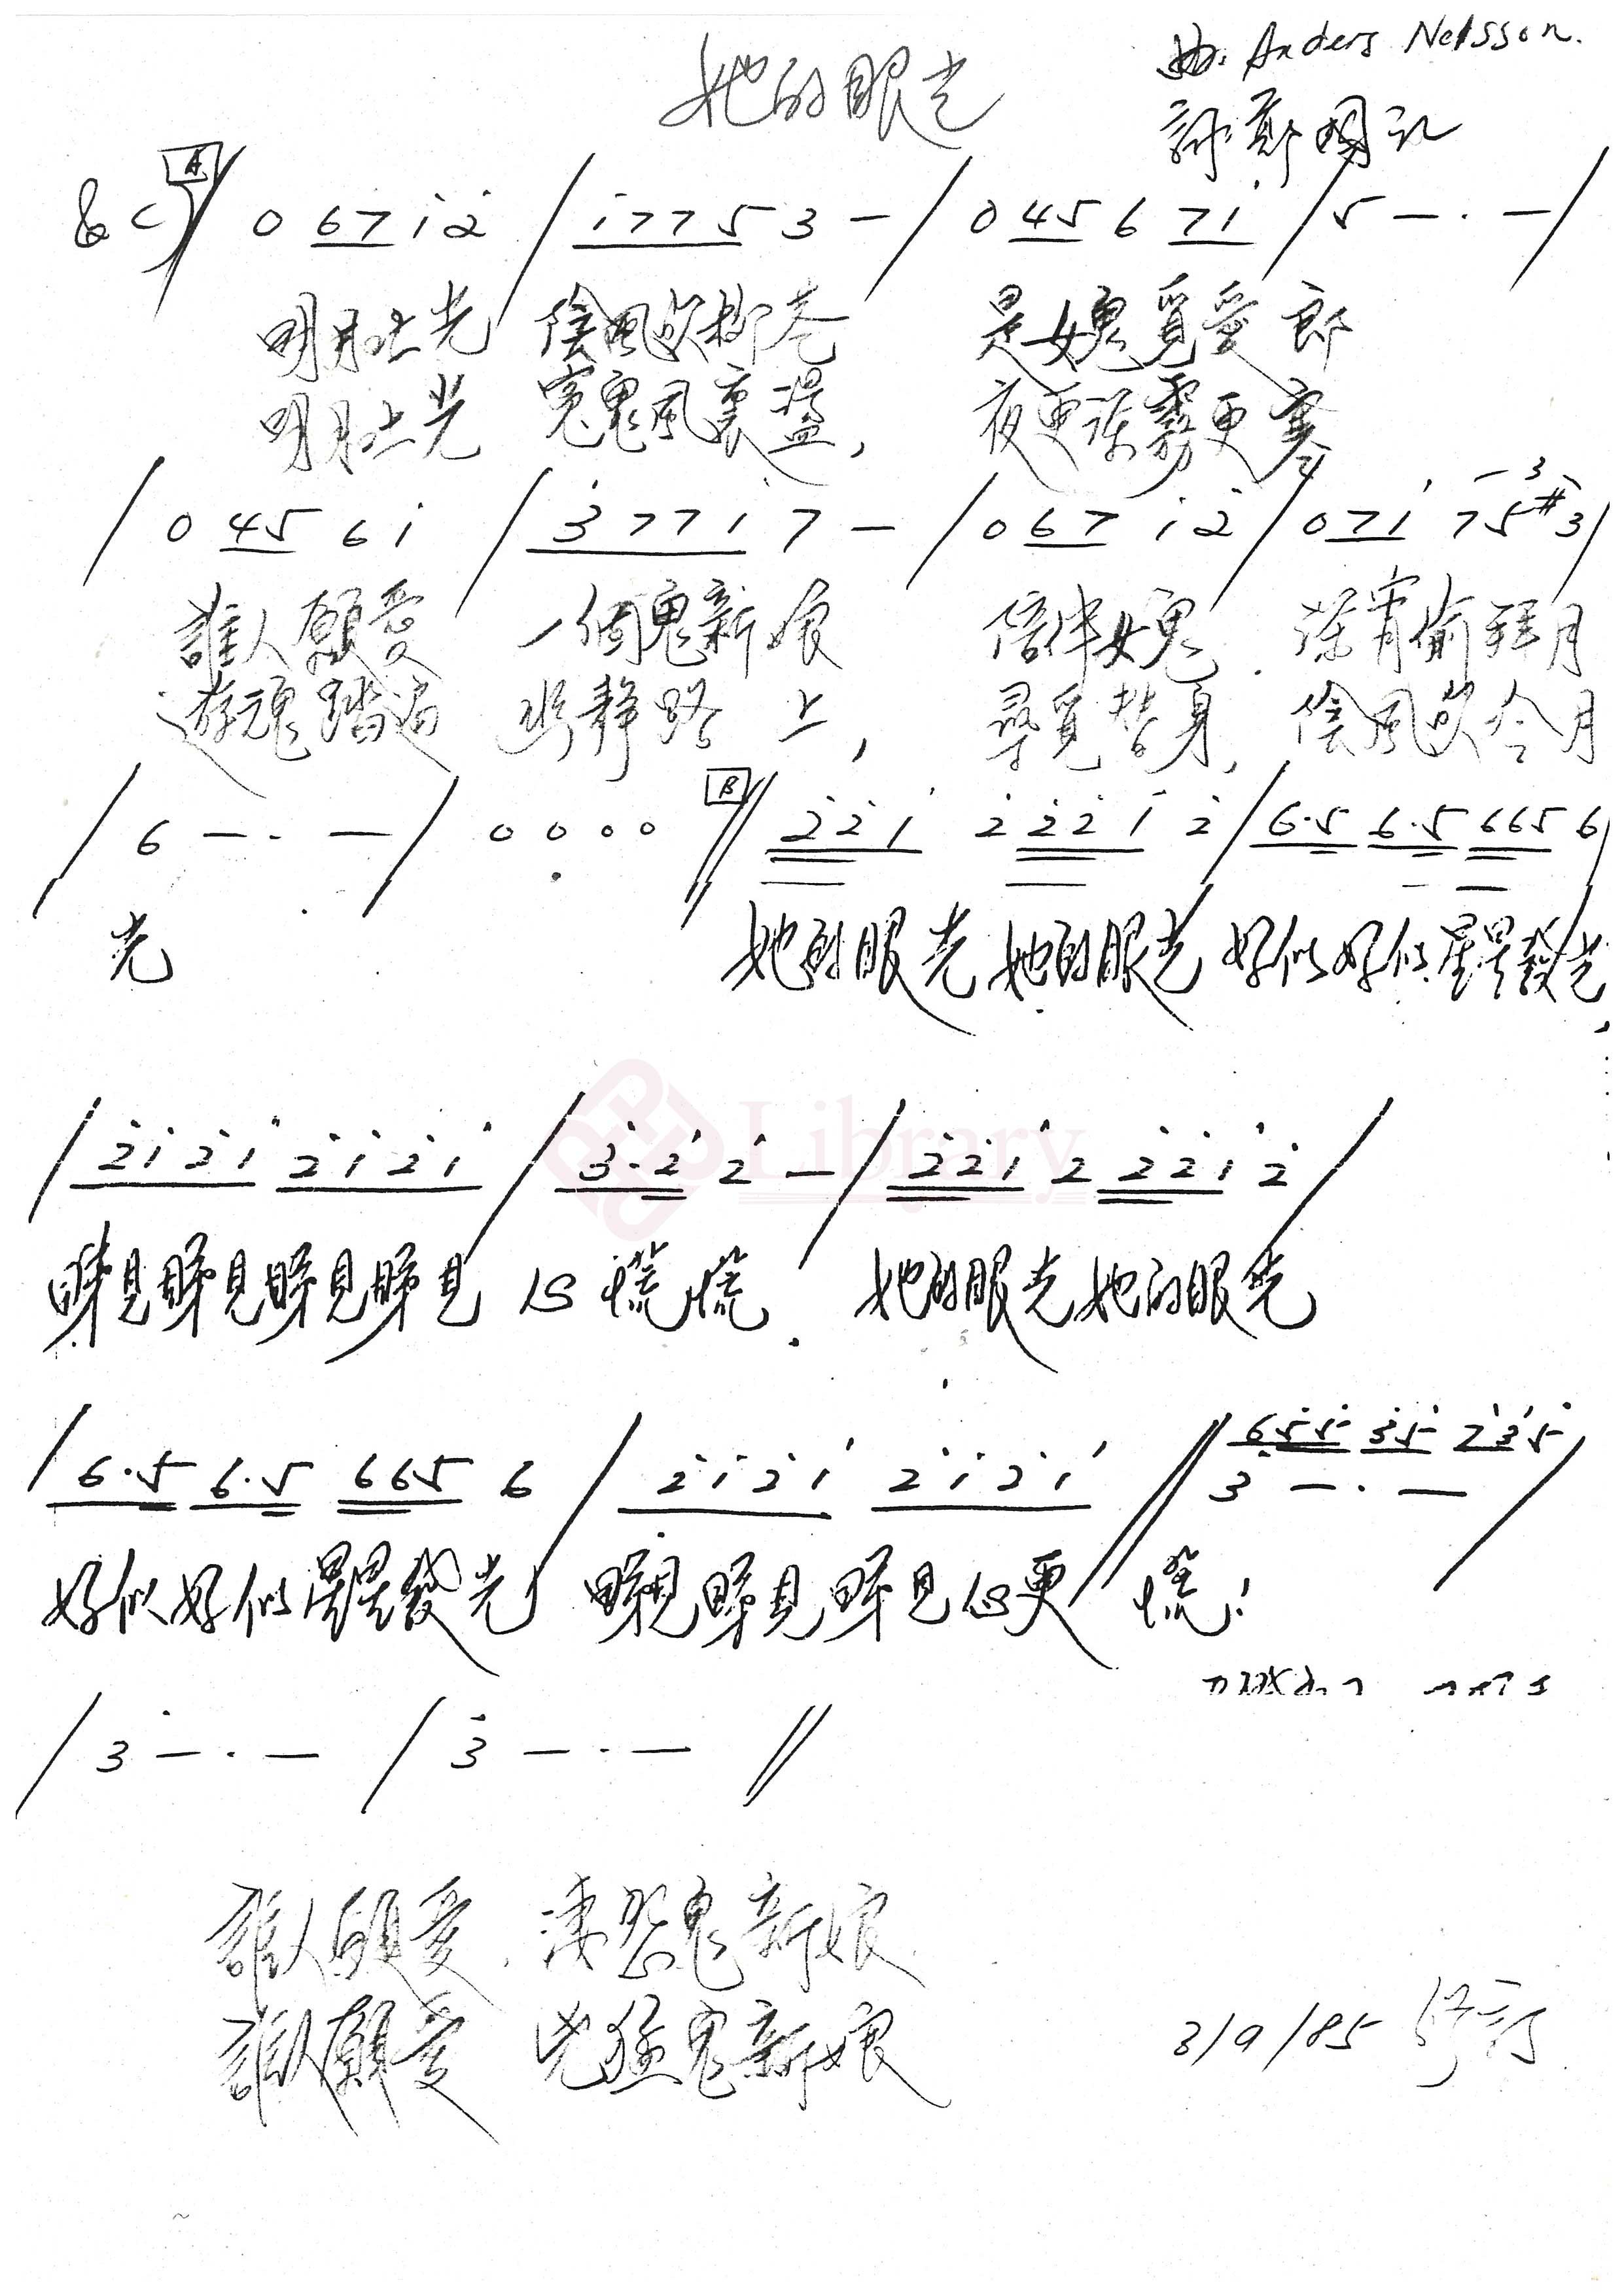 她的眼光
曲: Anders Nelsson.
詞: 鄭國江
A
0 67 1̇ 2̇ / 1̇775 3 — / 0 45 6 71̇ / 5 — · — /
明月生光 陰風吹柳巷 是女鬼覓愛郎
明月生光 冤鬼風裏盪, 夜更深霧更寒
/ 0 45 6 1̇ / 3̇771̇ 7 — / 0 67 1̇ 2̇ / 0 71̇ 75#3 /
誰人願愛 一個鬼新娘 倍伴女鬼. 深宵偷拜月
遊魂踏遍 幽靜路上, 尋覓替身, 陰風吹冷月
/ 6 — · — / 0 0 0 0 // B 2̇2̇1̇ 2̇ 2̇2̇1̇ 2̇ / 6·5 6·5 665 6 /
光 她的眼光她的眼光 好似好似星星發光,
Library
/ 2̇1̇2̇1̇ 2̇1̇2̇1̇ / 3̇·2̇ 2̇ — / 2̇2̇1̇ 2 2̇2̇1̇ 2̇ /
睇見睇見睇見睇見 心慌慌. 她的眼光她的眼光
6̇5̇5̇ 3̇5̇ 2̇3̇5̇
/ 6·5 6·5 665 6 / 2̇1̇2̇1̇ 2̇1̇2̇1̇ // 3̇ — · — /
好似好似星星發光 睇見睇見睇見心更 慌!
/ 3̇ — · — / 3̇ — · — //
誰人願愛. 淒恐鬼新娘.
誰人願愛 兇猛鬼新娘
3/9/85 修訂